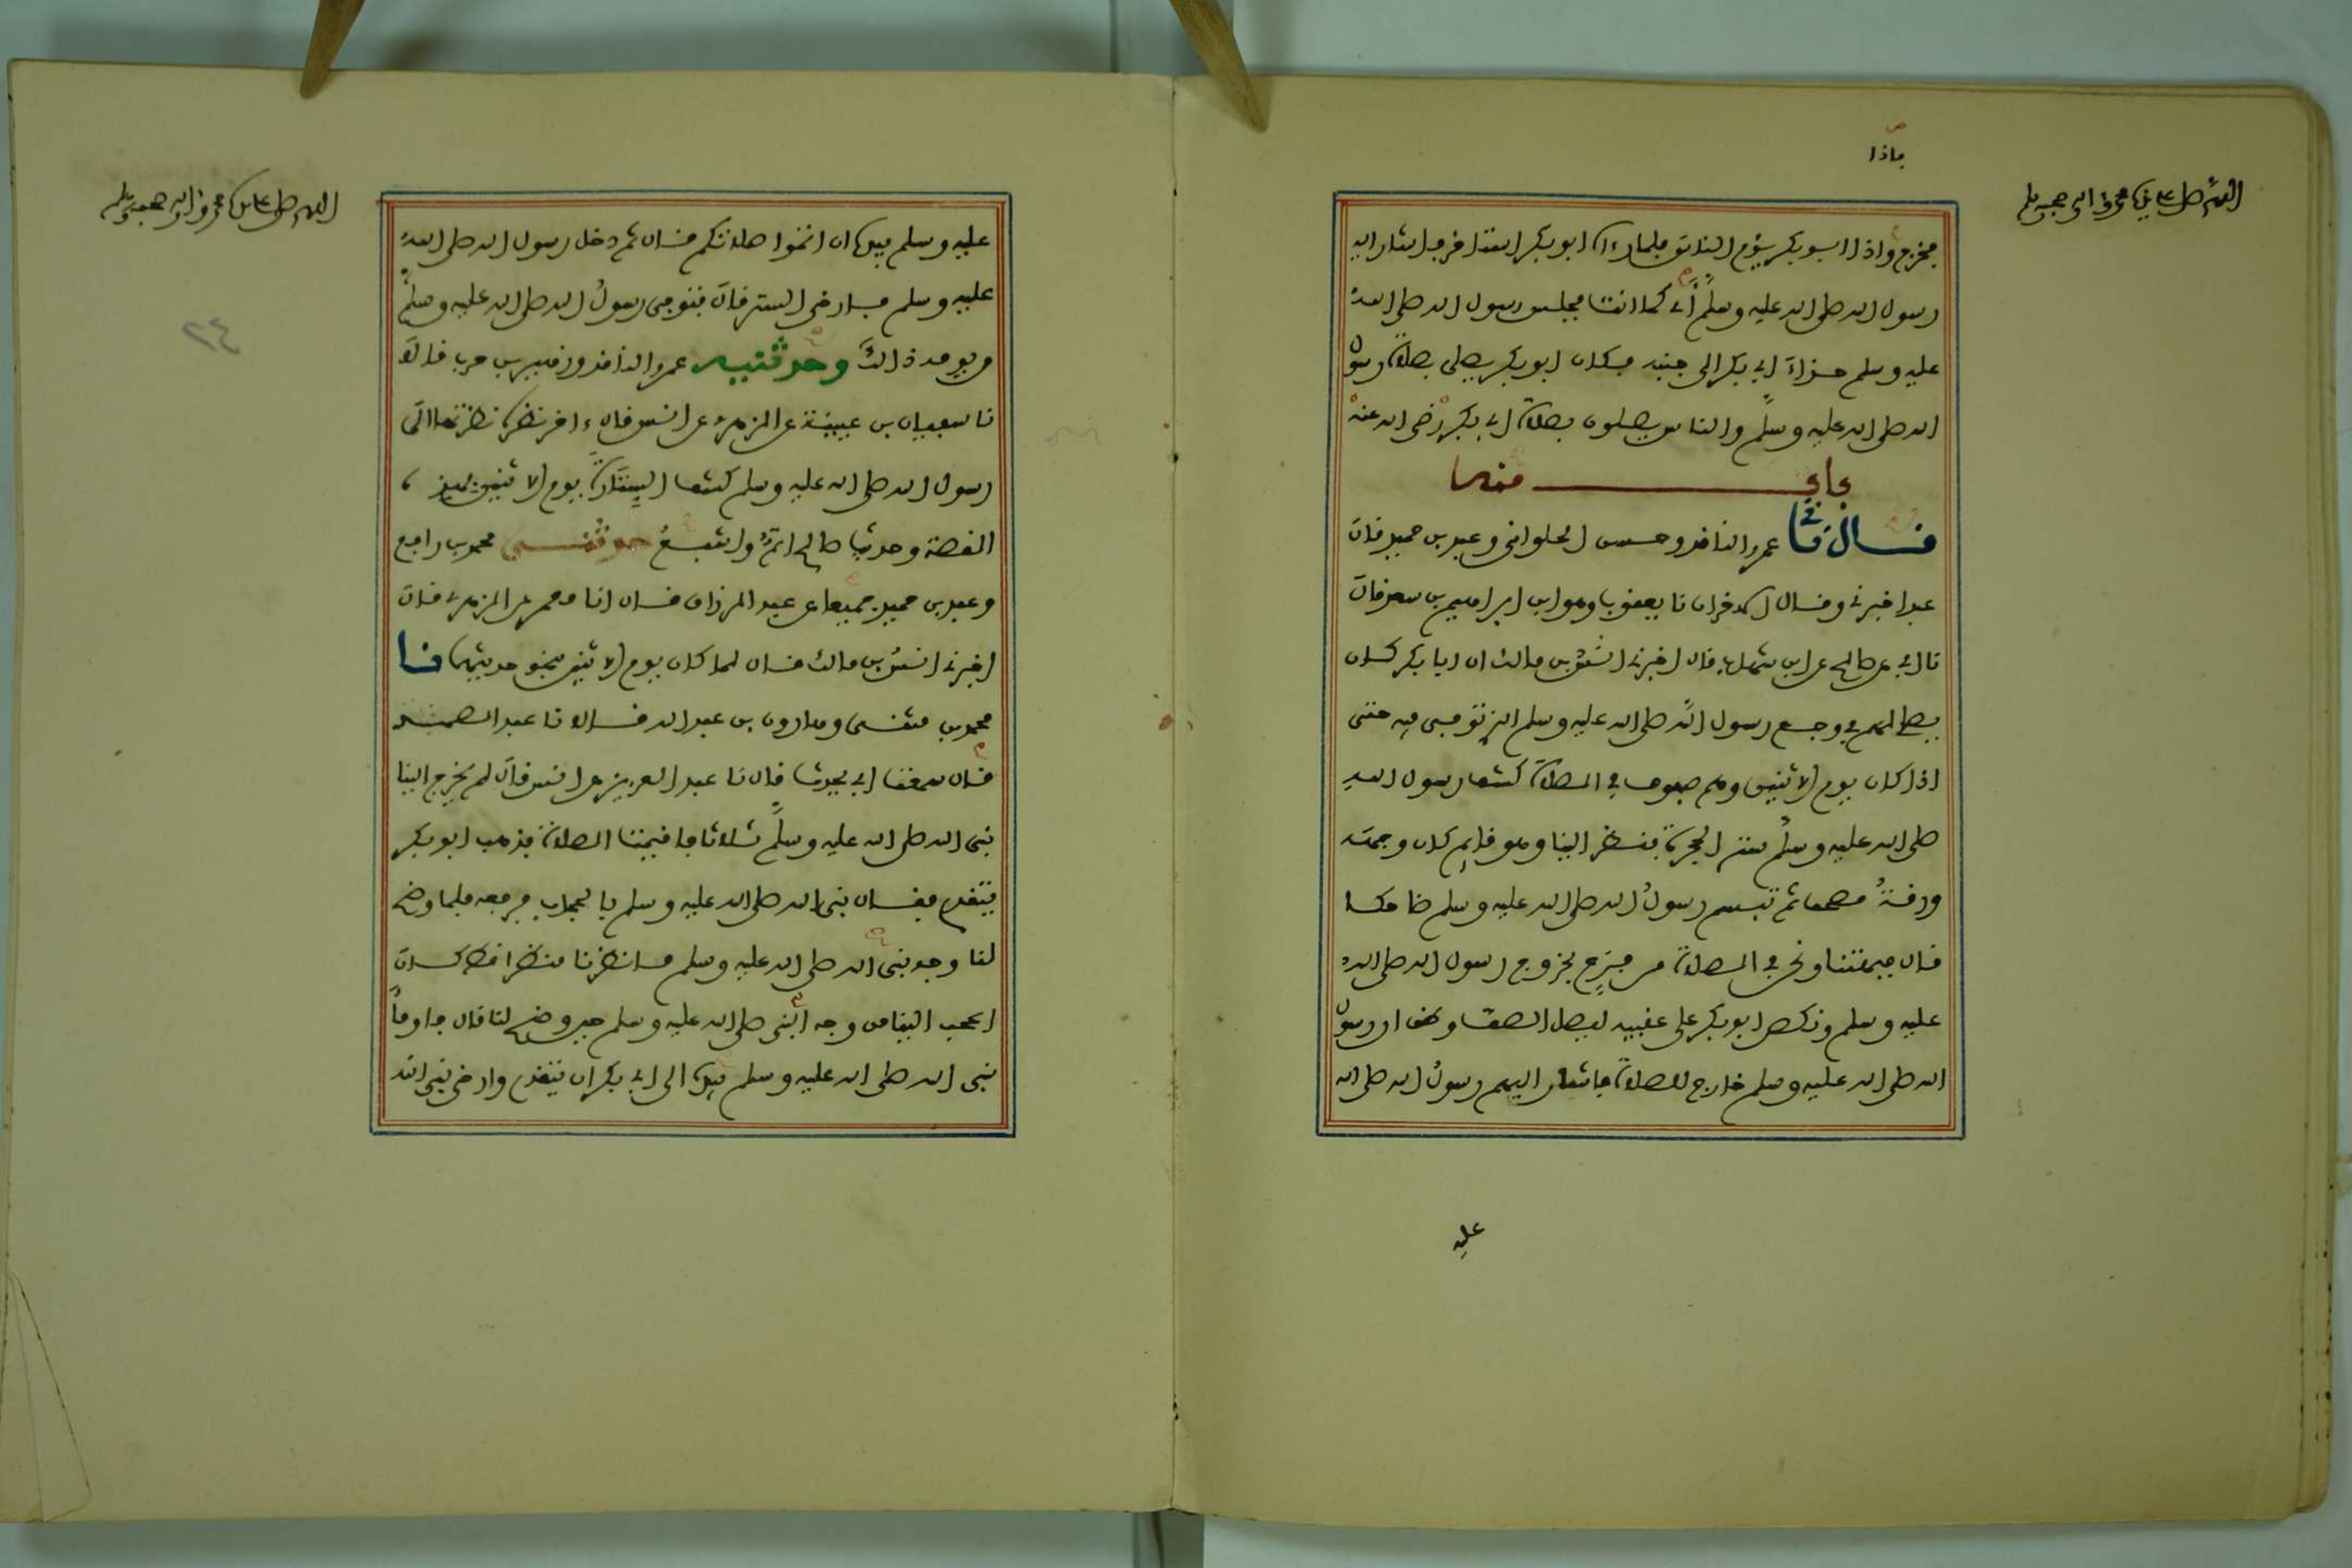 ماذا
اللهم صل على سيدنا محمد وءاله وصحبه وسلم
فخرج واذا ابو بكر يؤم الناس فلما رءاه ابو بكر استاخر فاشار اليه
رسول الله صلى الله عليه وسلم اى كما انت فجلس رسول الله صلى الله
عليه وسلم حذاء ابي بكر الى جنبه فكان ابو بكر يصلي بصلاة رسول
الله صلى الله عليه وسلم والناس يصلون بصلاة ابي بكر رضي الله عنه
باب منه
قال نا عمرو الناقد وحسن الحلواني وعبد بن حميد قال
عبد اخبرني وقال الاخران نا يعقوب وهو ابن ابراهيم بن سعد قال
نا ابي عن صالح عن ابن شهاب قال اخبرني انس بن مالك ان ابا بكر كان
يصلي لهم في وجع رسول الله صلى الله عليه وسلم الذي توفي فيه حتى
اذا كان يوم الاثنين وهم صفوف في الصلاة كشف رسول الله
صلى الله عليه وسلم ستر الحجرة فنظر الينا وهو قائم كان وجهه
ورقة مصحف ثم تبسم رسول الله صلى الله عليه وسلم ضاحكا
قال فبهتنا ونحن في الصلاة من فرح بخروج رسول الله صلى الله
عليه وسلم ونكص ابو بكر على عقبيه ليصل الصف وظن ان رسول
الله صلى الله عليه وسلم خارج للصلاة فاشار اليهم رسول الله صلى الله
عليه
اللهم صل على سيدنا محمد وءاله وصحبه وسلم
عليه وسلم بيده ان اتموا صلاتكم قال ثم دخل رسول الله صلى الله
عليه وسلم فارخى الستر قال فتوفي رسول الله صلى الله عليه وسلم
من يومه ذالك وحدثنيه عمرو الناقد وزهير بن حرب قالا
نا سفيان بن عيينة عن الزهري عن انس قال ءاخر نظرة نظرتها الى
رسول الله صلى الله عليه وسلم كشف الستارة يوم الاثنين بهذه
القصة وحديث صالح اتم واشبع حدثني محمد بن رافع
وعبد بن حميد جميعا عن عبد الرزاق قال انا معمر عن الزهري قال
اخبرني انس بن مالك قال لما كان يوم الاثنين بنحو حديثهما نا
محمد بن مثنى وهارون بن عبد الله قالا نا عبد الصمد
قال سمعت ابي يحدث قال نا عبد العزيز عن انس قال لم يخرج الينا
نبي الله صلى الله عليه وسلم ثلاثا فاقيمت الصلاة فذهب ابو بكر
يتقدم فقال نبي الله صلى الله عليه وسلم بالحجاب فرفعه فلما وضح
لنا وجه نبي الله صلى الله عليه وسلم ما نظرنا منظرا قط كان
اعجب الينا من وجه النبي صلى الله عليه وسلم حين وضح لنا قال فاومأ
نبي الله صلى الله عليه وسلم بيده الى ابي بكر ان يتقدم وارخى نبي الله